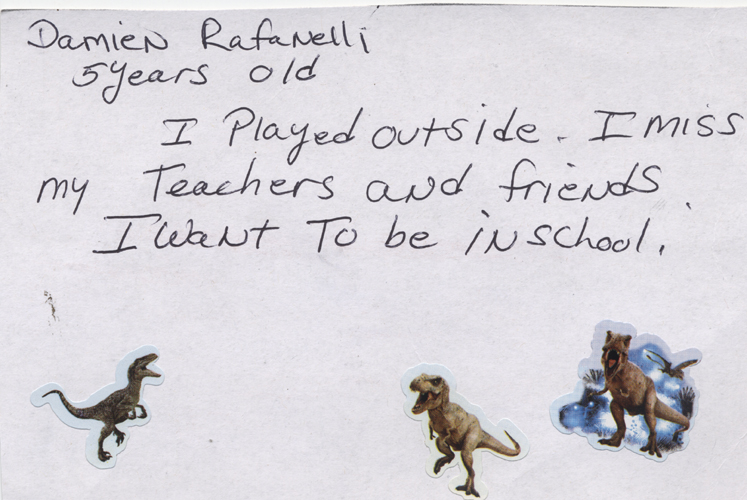 Damien Rafanelli
5years old
I Played outside. I miss
my Teachers and friends.
I Want To be in school.